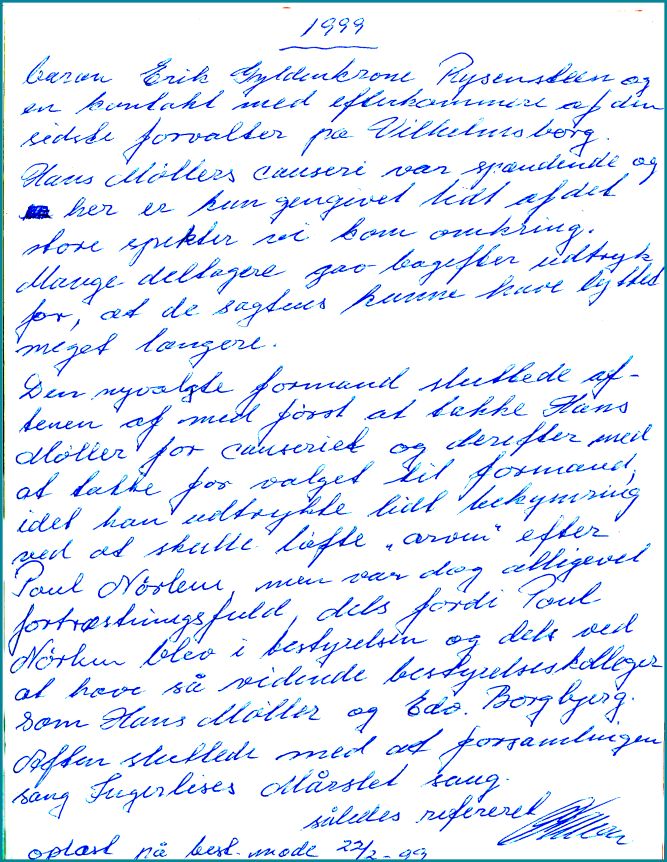 1999
baron Erik Gyldenkrone Rysensteen og
en kontakt med efterkommere af den
sidste forvalter på Vilhelmsborg.
Hans Møllers causeri var spændende og
her er kun gengivet lidt af det
store spekter vi kom omkring.
Mange deltagere gav bagefter udtryk
for, at de sagtens kunne have lyttet
meget længere.
Den nyvalgte formand sluttede af-
tenen af med først at takke Hans
Møller for causeriet og derefter med
at takke for valget til formand,
idet han udtrykte lidt bekymring
ved at skulle løfte "arven" efter
Poul Nörlem, men var dog alligevel
fortrøstningsfuld, dels fordi Poul
Nörlem blev i bestyrelsen og dels ved
at have så vidende bestyrelseskolleger
som Hans Møller og Edv. Borgbjerg.
Aften sluttede med at forsamlingen
sang Ingerlises Mårslet sang.
således refereret
oplæst på best. møde 22/2-99